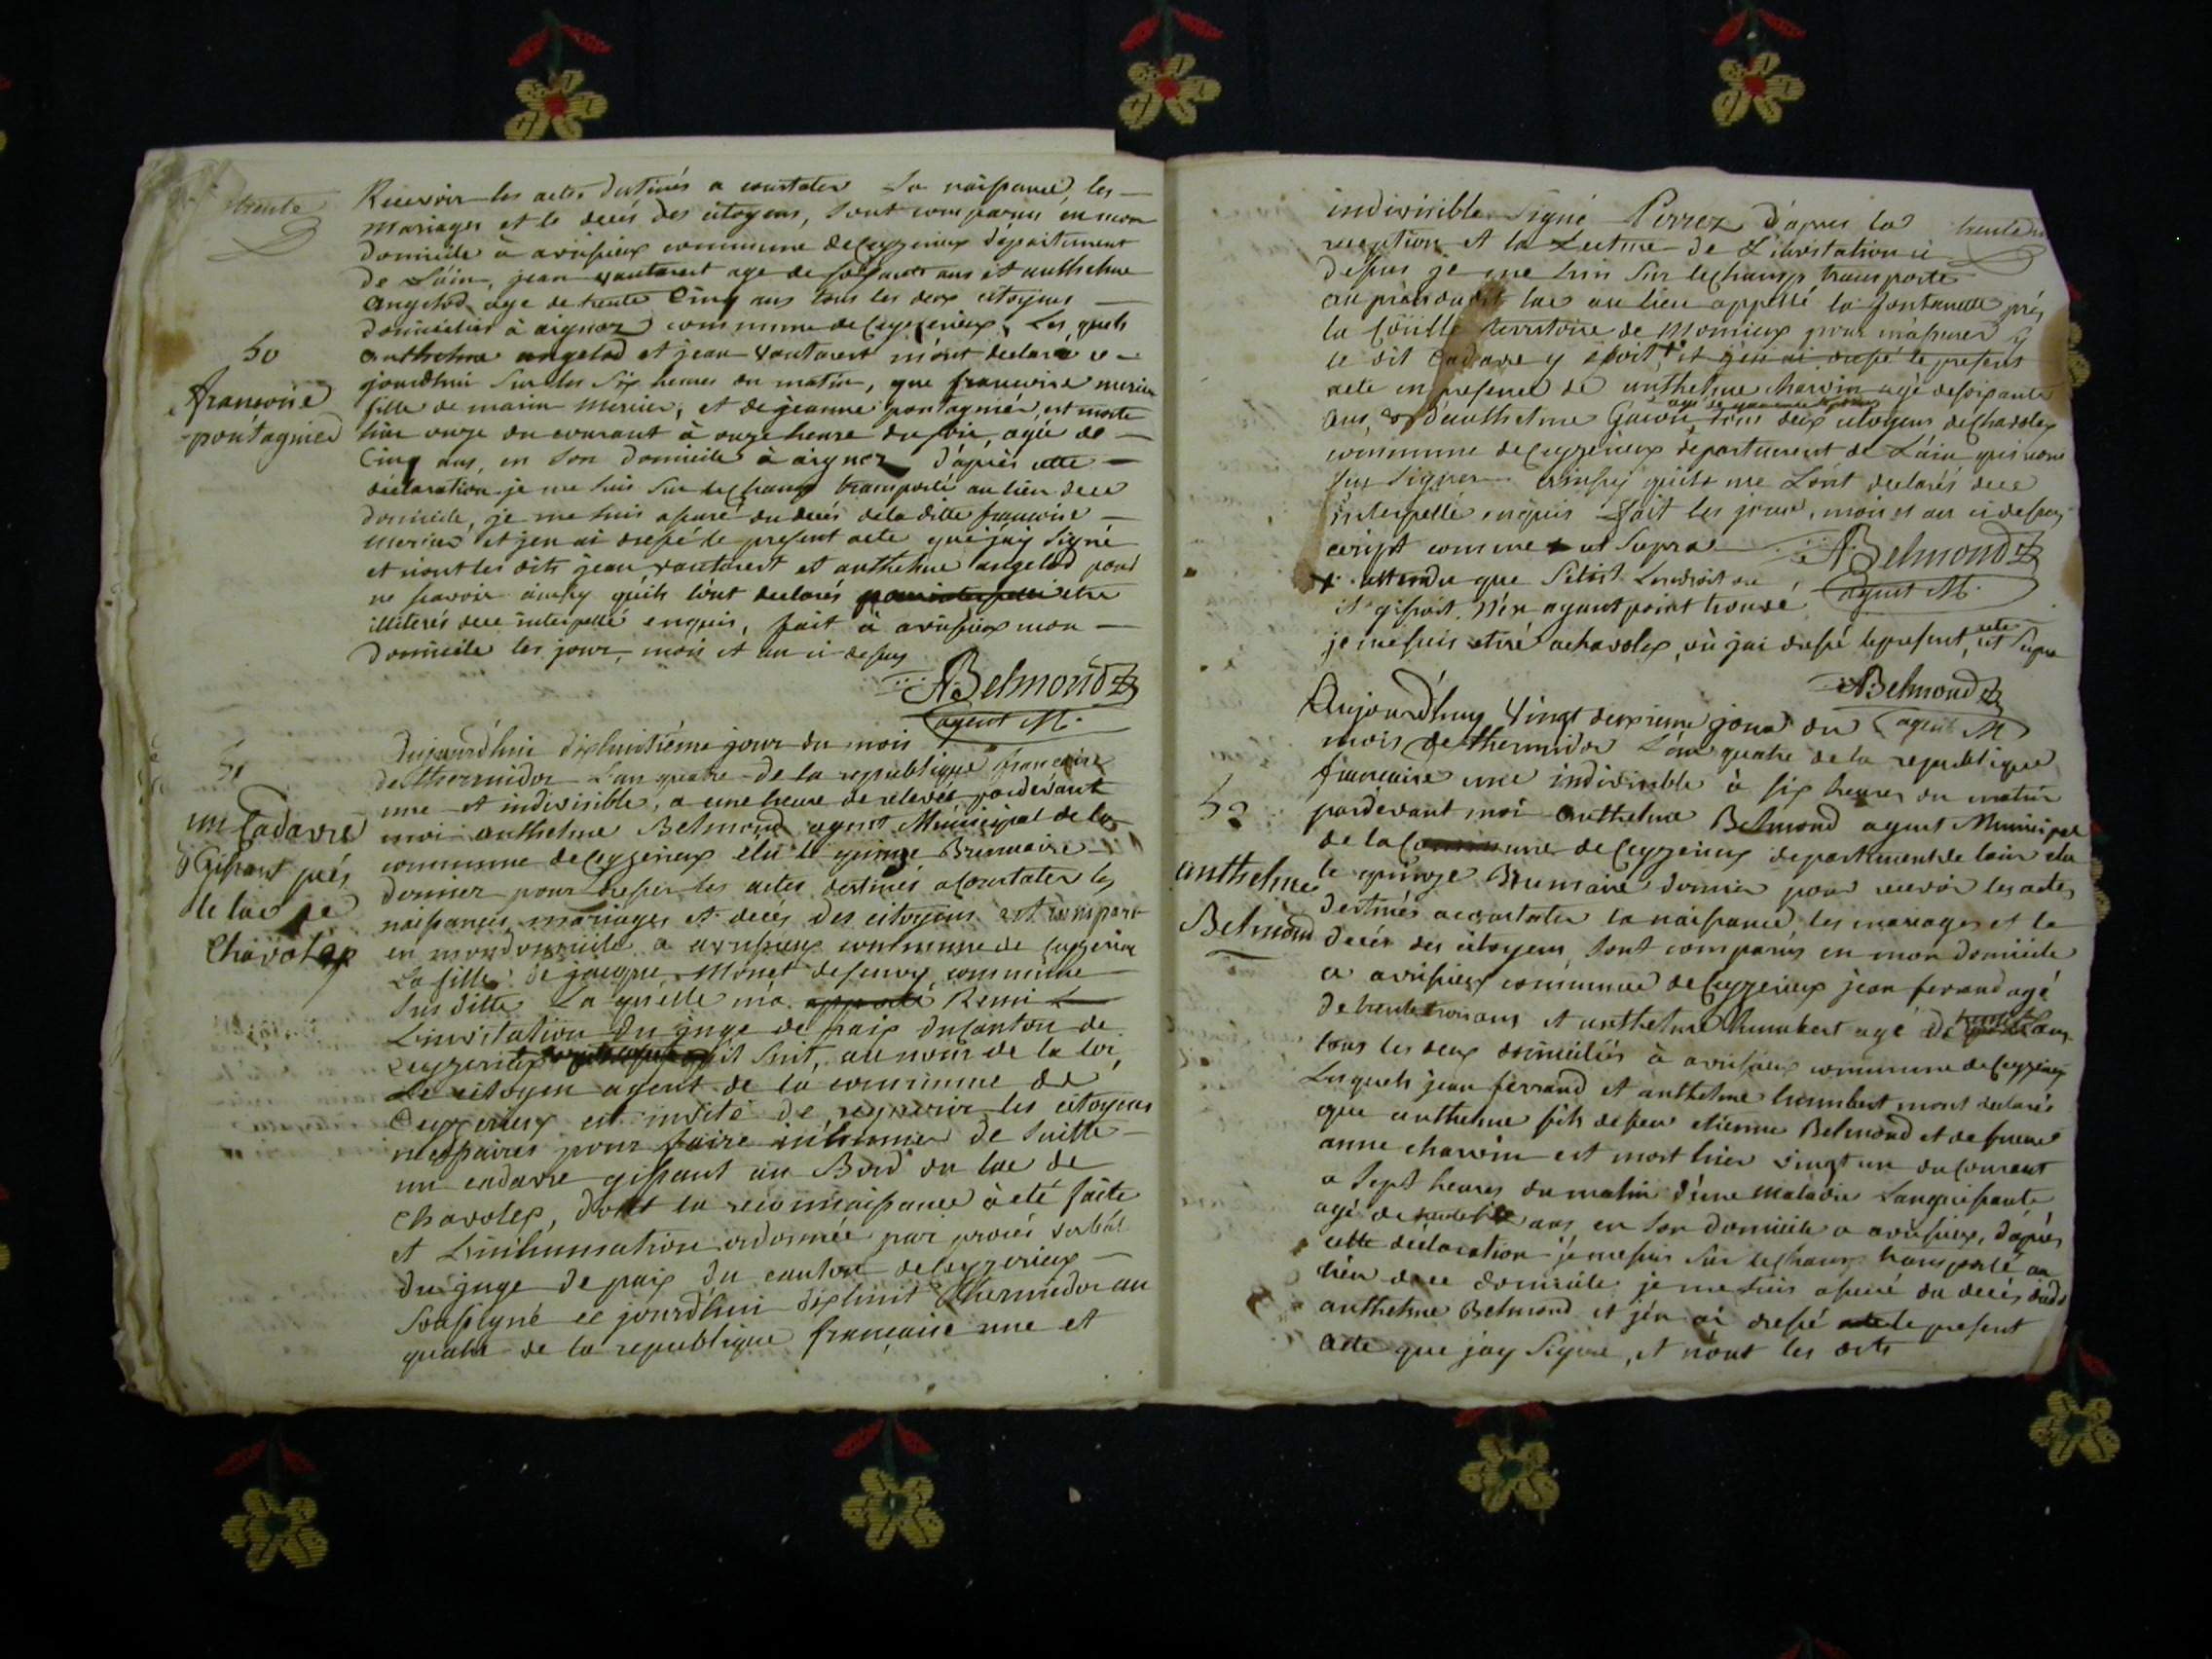 trente
Recevoir les actes destinés a constater la naissance, les
mariages et le decés des citoyens, sont comparus en mon
domicile à avrissieux commune de Ceyzerieux département
de L'ain, jean vautaret age de soixante ans et anthelme
angelod age de trente Cinq ans tous les deux citoyens
domiciliés à aignoz commune de Ceyzerieux, Les quels
50
françoise
pontagnier
anthelme angelod et jean vautaret m'ont declaré ce
jourdhui sur les six heures du matin, que françoise mercier
fille de marin mercier, et de jeanne pontagnier, est morte
hier onze du courant à onze heure du soir, agée de
Cinq ans, en son domicile à aignoz d'après cette
déclaration je me suis sur le champ transporté au lieu de ce
domicile, je me suis assuré du decés de la ditte françoise
mercier et j'en ai dressé le present acte que j'ay signé
et nont les dits jean vautaret et anthelme angelod pour
ne scavoir ainsy qu'ils l'ont declarés etre
illiterés de ce interpellé enquis, fait à avrissieux mon
domicile les jour, mois et an ci dessus
ABelmond
agent M.
51
un Cadavre
Gissant près
le lac de
Chavoley
Aujourd'hui dixhuitième jour du mois
de thermidor L'an quatre de la republique françoise
une et indivisible, a une heure de relevée pardevant
moi anthelme Belmond agent Municipal de la
commune de Ceyzerieux élu le quinze Brumaire
dernier pour dresser les actes destinés a constater les
naissances mariages et decés des citoyens est comparu
en mon domicile a avrissieux commune de Ceyzerieux
La fille de jacque Monet de commune
sus ditte La quelle m'a apporté Remi
L'invitation du juge de paix du Canton de
Ceyzerieux suit, au nom de la loi,
Le citoyen agent de la commune de
Ceyzerieux est invité de requerir les citoyens
necessaires pour faire inhumer de suitte
un cadavre gissant au Bord du lac de
Chavoley, dont la reconnaissance à été faite
et L'inhumation ordonnée par procés verbal
du juge de paix du canton de Ceyzerieux
soussigné ce jourdhui dixhuit thermidor an
quatre de la republique française une et
indivisible. signé Perrez d'apres la
reception et la Lecture de L'invitation ci
dessus je me suis sur le champ transporté
au près du dit lac au lieu appellé la fontanette près
la Couille territoire de Momieux pour m'assurer sy
le dit Cadavre y étoit, + et j'en ai dressé le present
acte en presence de anthelme charvin agé de soixante
ans, et d'anthelme tous deux citoyens de Chavoley
commune de Ceyzerieux departement de L'ain qui n'ont
sçu signer ainsy quils me L'ont declarés de ce
interpellé enquis fait les jour, mois et an ci dessus
ecript comme ut supra
ABelmond
agent M.
+ attendu que L'endroit ou
il gissoit. N'en ayant point trouvé
je me suis retiré a chavoley, où j'ai dressé le present acte ut supra
ABelmond
agent M
Aujourd'huy Vingt deuxieme jour du
mois de thermidor L'an quatre de la republique
française une indivisible à six heures du matin
52
anthelme
Belmond
pardevant moi anthelme Belmond agent Municipal
de la Commune de Ceyzerieux departement de lain elu
le quinze Brumaire dernier pour recevoir les actes
destinés a constater la naissance les mariages et le
decés des citoyens, sont comparus en mon domicile
a avrissieux commune de Ceyzerieux jean ferrand agé
de trente trois ans et anthelme humbert agé de ans
tous les deux domiciliés à avrissieux commune de Ceyzerieux
Lesquels jean ferrand et anthelme humbert mont declarés
que anthelme fils de feu etienne Belmond et de feue
anne charvin est mort hier vingt un du Courant
a sept heures du matin d'une Maladie Languissante
agé de ans, en son domicile a avrissieux, d'apres
cette déclaration je me suis sur le champ transporté au
lieu de ce domicile je me suis assuré du decés dudit
anthelme Belmond et j'en ai dressé le present
acte que jay signé, et n'ont les dits